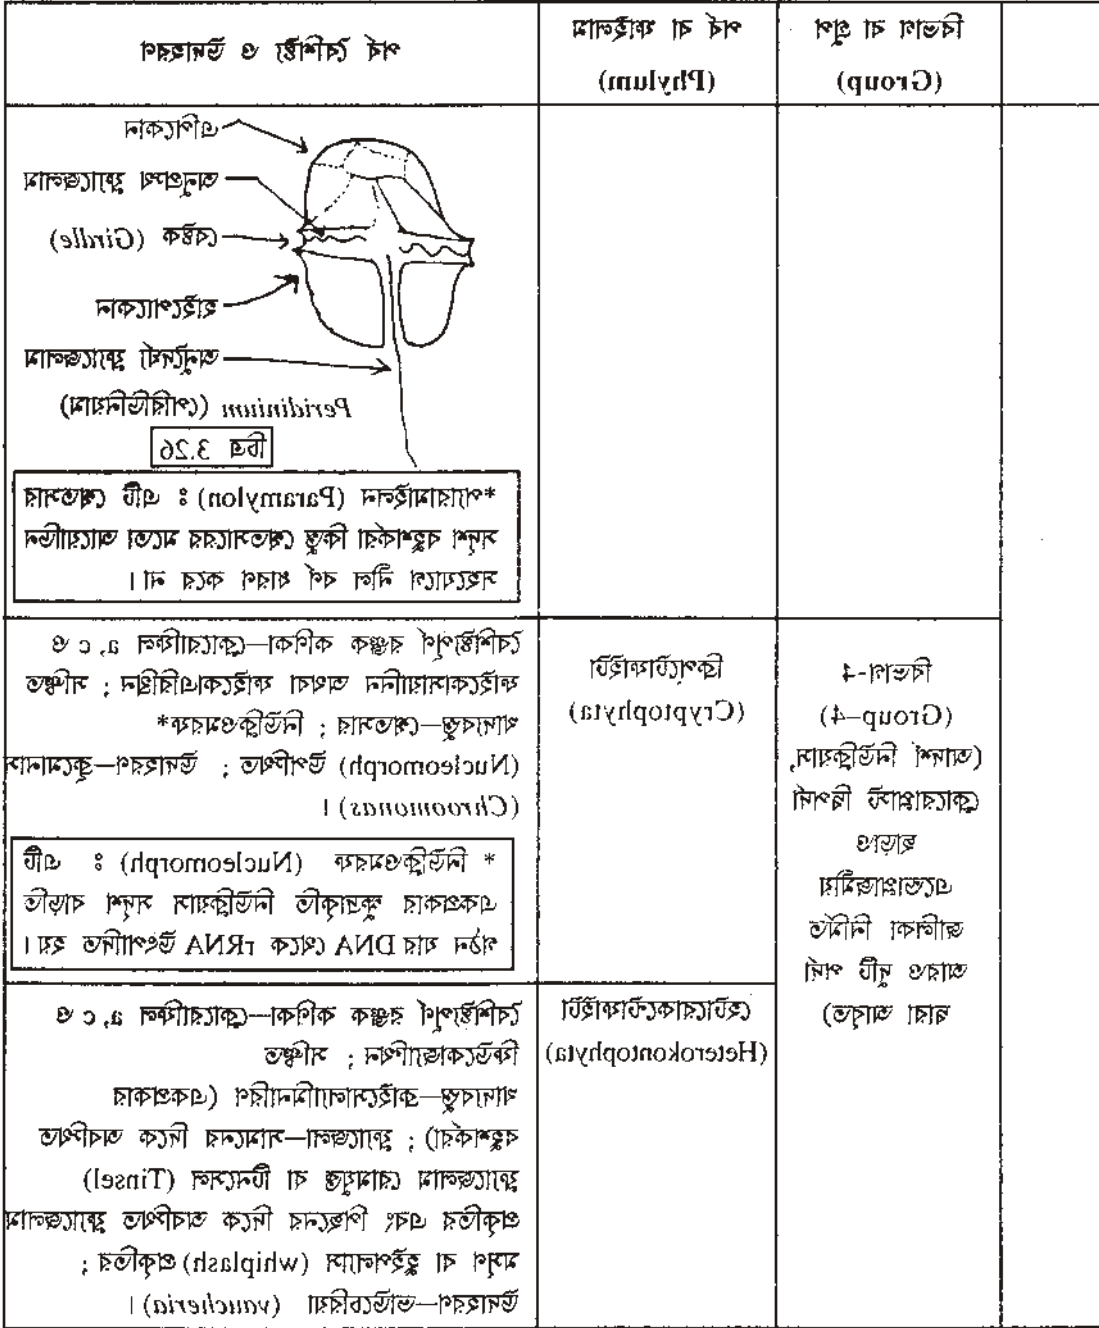 বিভাগ বা গ্রুপ
(Group)
পর্ব বা ফাইলাম
(Phylum)
পর্ব বৈশিষ্ট্য ও উদাহরণ
এপিকোন
অনুপ্রস্থ ফ্ল্যাজেলাম
বেষ্টক (Girdle)
হাইপোকোন
অনুদৈর্ঘ্য ফ্ল্যাজেলাম
Peridinium (পেরিডিনিয়াম)
চিত্র 3.26
*প্যারামাইলন (Paramylon) : এটি শ্বেতসার
সদৃশ বহুশর্করা কিন্তু শ্বেতসারের মতো আয়োডিন
সহযোগে নীল বর্ণ ধারণ করে না।
বিভাগ-4
(Group–4)
(আদর্শ নিউক্লিয়াস,
ক্লোরোপ্লাস্ট দ্বিপর্দা
ছাড়াও
এন্ডোপ্লাজমীয়
জালিকা নির্মিত
আরও দুটি পর্দা
দ্বারা আবৃত)
ক্রিপ্টোফাইটা
(Cryptophyta)
বৈশিষ্ট্যপূর্ণ রঞ্জক কণিকা—ক্লোরোফিল a, c ও
ফাইকোসায়ানিন অথবা ফাইকোএরিথ্রিন ; সঞ্চিত
খাদ্যবস্তু—শ্বেতসার ; নিউক্লিওমরফ*
(Nucleomorph) উপস্থিত ; উদাহরণ—ক্রুমোনাস
(Chroomonas) ।
* নিউক্লিওমরফ (Nucleomorph) : এটি
একপ্রকার ক্ষুদ্রাকৃতি নিউক্লিয়াস সদৃশ বাড়তি
গঠন যার DNA থেকে rRNA উৎপাদিত হয়।
হেটারোকন্টোফাইটা
(Heterokontophyta)
বৈশিষ্ট্যপূর্ণ রঞ্জক কণিকা—ক্লোরোফিল a, c ও
ফিউকোজ্যান্থিন ; সঞ্চিত
খাদ্যবস্তু—ক্রাইসোল্যামিনারিণ (একপ্রকার
বহুশর্করা) ; ফ্ল্যাজেলা—সামনের দিকে অবস্থিত
ফ্ল্যাজেলাম রোমযুক্ত বা টিনসেল (Tinsel)
প্রকৃতির এবং পিছনের দিকে অবস্থিত ফ্ল্যাজেলাম
মসৃণ বা হুইপল্যাস (whiplash) প্রকৃতির ;
উদাহরণ—ভাউচেরিয়া (vaucheria) ।